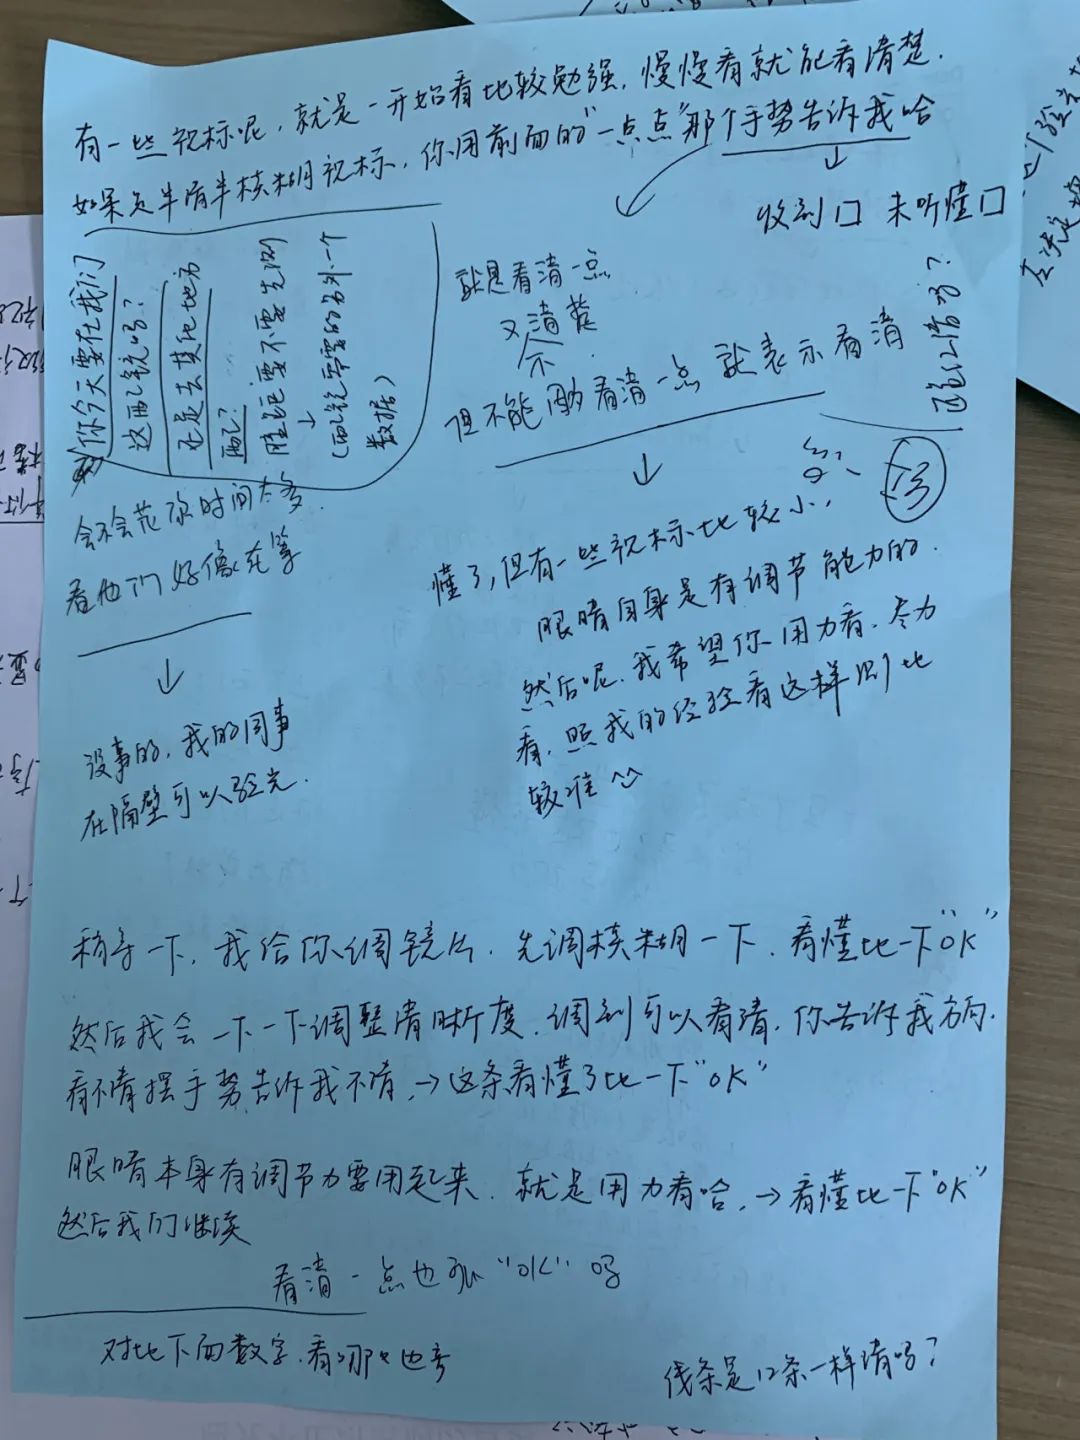 有一些视标呢，就是一开始看比较勉强，慢慢看就能看清楚.
如果是半清半模糊视标，你用前面的"一点点"那个手势告诉我哈
收到口 未听懂口
你今天要在我们
这配镜吗？
还是去其他地方
配？
胜记要不要先测
(配镜需要的另外一个
数据)
就是看清一点
又不清楚
但不能 看清一点 就表示看清
会不会花你时间太多.
看他们好像在等
懂了,但有一些视标比较小,
眼睛自身是有调节能力的.
然后呢.我希望你用力看.尽力
看,照我的经验看这样测比
较准
没事的,我的同事
在隔壁可以验光.
稍等一下,我给你调镜片.先调模糊一下.看懂比一下"OK"
然后我会一下一下调整清晰度.调到可以看清,你告诉我方向.
看不清摆手势告诉我不清,→这条看懂了比一下"OK"
眼睛本身有调节力要用起来.就是用力看哈,→看懂比一下"OK"
然后我们继续
看清一点也 "OK"吗
对比下面数字.看哪
线条是12条一样清吗？